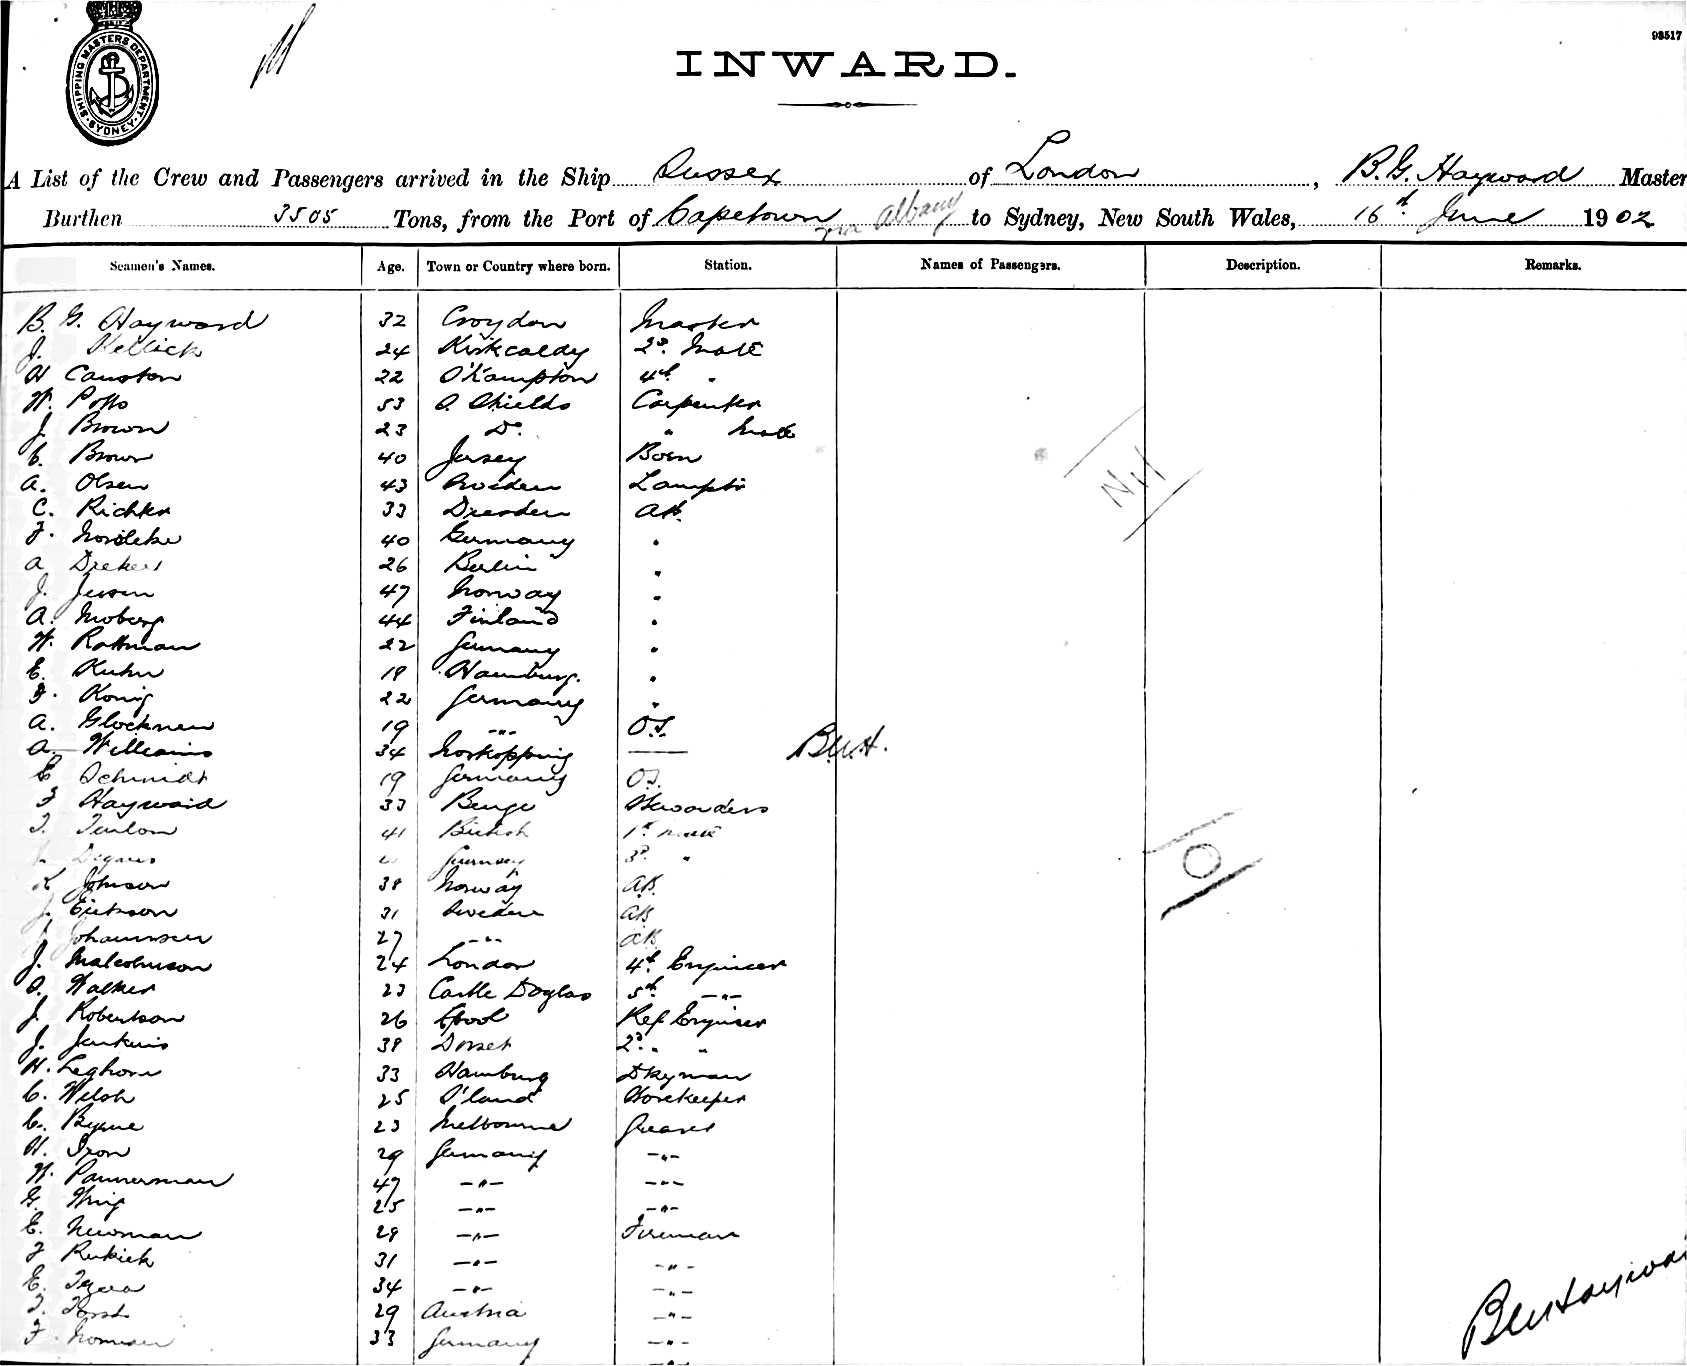 SHIPPING MASTERS DEPARTMENT. SYDNEY.
93517
INWARD.
A List of the Crew and Passengers arrived in the Ship Sussex of London, B. G. Hayward Master
Burthen 3505 Tons, from the Port of Capetown via Albany to Sydney, New South Wales, 16th June 1902
Seamen's Names. Age. Town or Country where born. Station. Names of Passengers. Description. Remarks.
B. G. Hayward 32 Croydon Master
J. Kellick 24 Kirkcaldy 2d. Mate
H Causton 22 O'Kampton 4th "
W. Potts 53 S. Shields Carpenter
J. Brown 23 Do. " Mate
C. Brown 40 Jersey Bosn
A. Olsen 43 Sweden Lamptr
Nil
C. Richter 33 Dresden AB.
F. Nordeke 40 Germany "
A 26 Berlin "
J. Jensen 47 Norway "
A. Moberg 44 Finland "
W. Rottman 22 Germany "
E. Kuhn 18 Hamburg. "
F. Konig 22 Germany "
A. Glockner 19 -"- O.S.
A. Williams 34 Norkopping
E Schmidt 19 Germany O.S.
F Hayward 33 Stewarders
T. 41 British 1st mate
3d. "
K Johnson 38 Norway AB.
J. Erikson 31 Sweden AB
Johannsen 27 -"- AB
J. Malcolmson 24 London 4th. Engineer
S. Walker 23 Castle Doglas 5th. -"-
J. Robertson 26 L'pool Ref. Engineer
J. Jenkins 38 Dorset 2d. " "
H. Leghorn 33 Hamburg Dkyman
C. Welsh 25 S'land Storekeeper
C. Byrne 23 Melbourne Greaser
H. Iron 29 Germany -"-
W. Pannerman 47 -"- -"-
G. 25 -"- -"-
E. Newman 29 -"- Fireman
F 31 -"- -"-
E. 34 -"- -"-
T. 29 Austria -"-
F. 33 Germany -"-